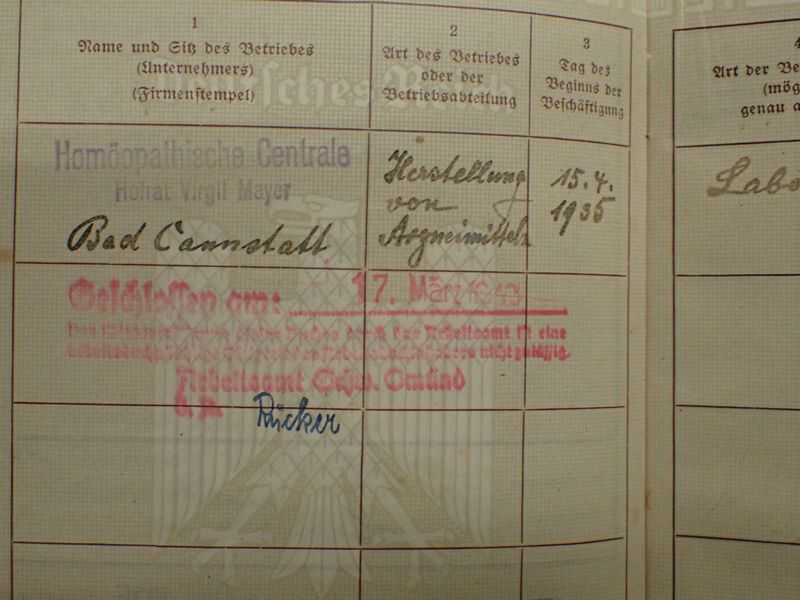 1
Name und Sitz des Betriebes
(Unternehmers)
(Firmenstempel)
2
Art des Betriebes
oder der
Betriebsabteilung
3
Tag des
Beginns der
Beschäftigung
4
Art der Be
(mög
genau a
Homöopathische Centrale
Hofrat Virgil Mayer
Bad Cannstatt
Herstellung
von
Arzneimitteln
15.4.
1935
Labo
Geschlossen am: 17. März 1943
des Arbeitsamt ist eine
nicht zulässig.
Arbeitsamt Schw. Gmünd
Rücker